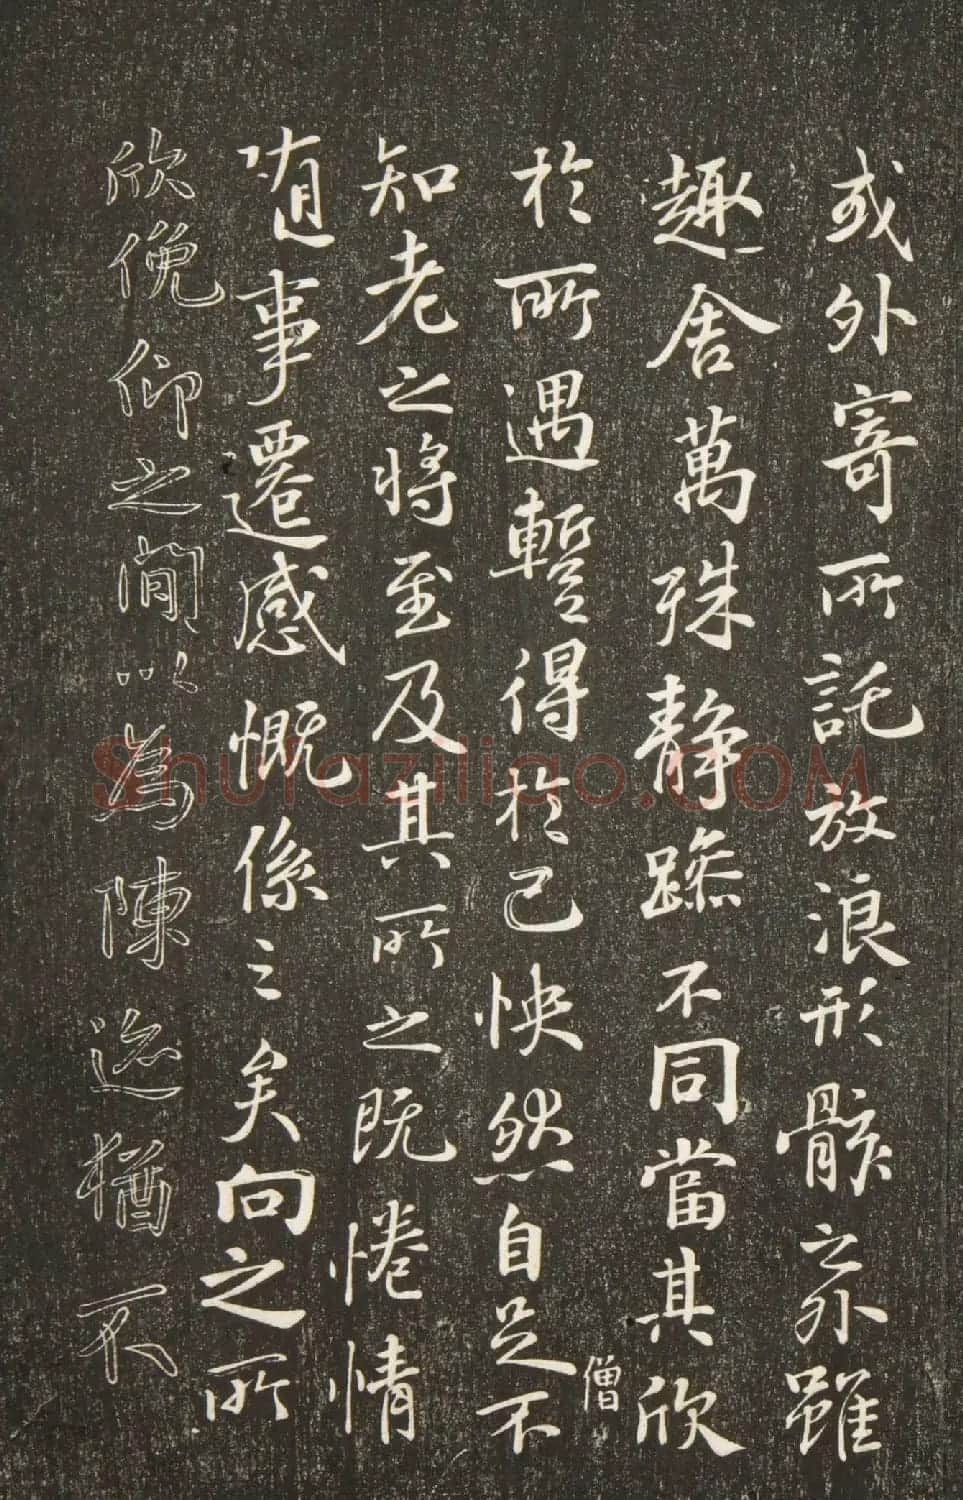 或外寄所託放浪形骸之外雖
趣舍萬殊静躁不同當其欣
於所遇蹔得於己怏然自足不
僧
知老之將至及其所之既惓情
隨事遷感慨係之矣向之所
欣俛仰之間以為陳迹猶不
Shufaziliao.COM